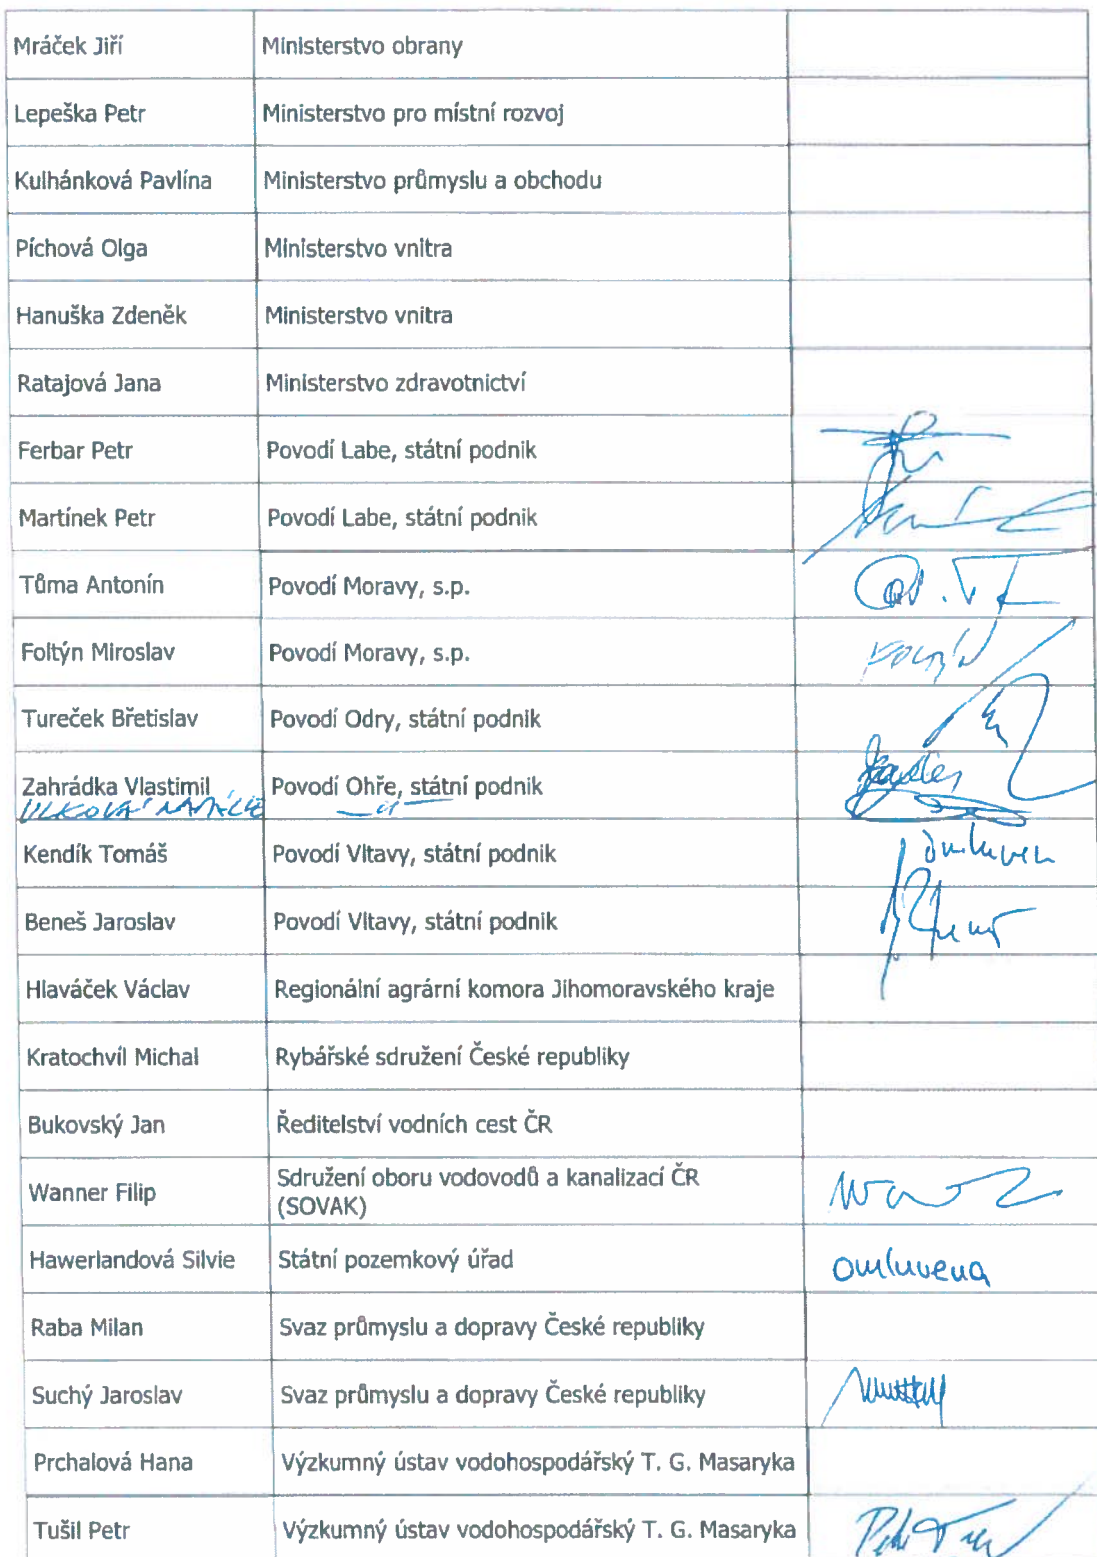 Mráček Jiří Ministerstvo obrany
Lepeška Petr Ministerstvo pro místní rozvoj
Kulhánková Pavlína Ministerstvo průmyslu a obchodu
Píchová Olga Ministerstvo vnitra
Hanuška Zdeněk Ministerstvo vnitra
Ratajová Jana Ministerstvo zdravotnictví
Ferbar Petr Povodí Labe, státní podnik
Martínek Petr Povodí Labe, státní podnik
Tůma Antonín Povodí Moravy, s.p.
Foltýn Miroslav Povodí Moravy, s.p. Foltýn
Tureček Břetislav Povodí Odry, státní podnik
Zahrádka Vlastimil Povodí Ohře, státní podnik
Kendík Tomáš Povodí Vltavy, státní podnik omluven
Beneš Jaroslav Povodí Vltavy, státní podnik
Hlaváček Václav Regionální agrární komora Jihomoravského kraje
Kratochvíl Michal Rybářské sdružení České republiky
Bukovský Jan Ředitelství vodních cest ČR
Wanner Filip Sdružení oboru vodovodů a kanalizací ČR
(SOVAK)
Hawerlandová Silvie Státní pozemkový úřad omluvena
Raba Milan Svaz průmyslu a dopravy České republiky
Suchý Jaroslav Svaz průmyslu a dopravy České republiky
Prchalová Hana Výzkumný ústav vodohospodářský T. G. Masaryka
Tušil Petr Výzkumný ústav vodohospodářský T. G. Masaryka